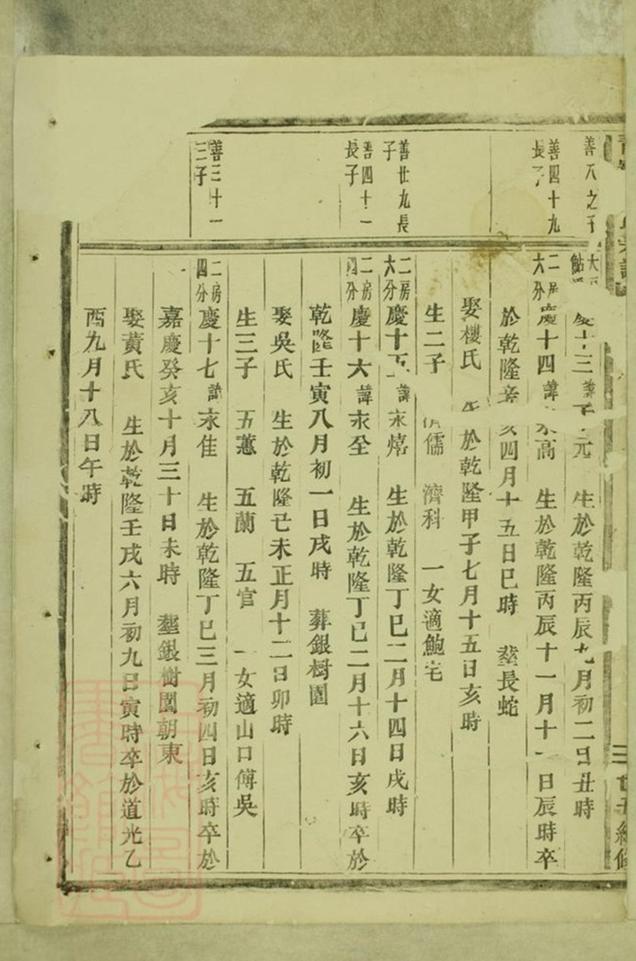 善八之子
善四十九
長子
善廿九長
子
善四十一
長子
善三十一
三子
慶十三 諱 元 生於乾隆丙辰九月初二日丑時
二房六分 慶十四 諱永高 生於乾隆丙辰十一月十一日辰時卒
於乾隆辛亥四月十五日巳時 塟長蛇
娶樓氏 生於乾隆甲子七月十五日亥時
生二子 儒 濟科 一女適鮑宅
二房六分 慶十五 諱永熺 生於乾隆丁巳二月十四日戌時
二房四分 慶十六 諱永全 生於乾隆丁巳二月十六日亥時卒於
乾隆壬寅八月初一日戌時 葬銀樹園
娶吳氏 生於乾隆己未正月十二日卯時
生三子 五蕙 五蘭 五官 一女適山口傅吳
二房四分 慶十七 諱永佳 生於乾隆丁巳三月初四日亥時卒於
嘉慶癸亥十月三十日未時 塟銀樹園朝東
娶黃氏 生於乾隆壬戌六月初九日寅時卒於道光乙
酉九月十八日午時